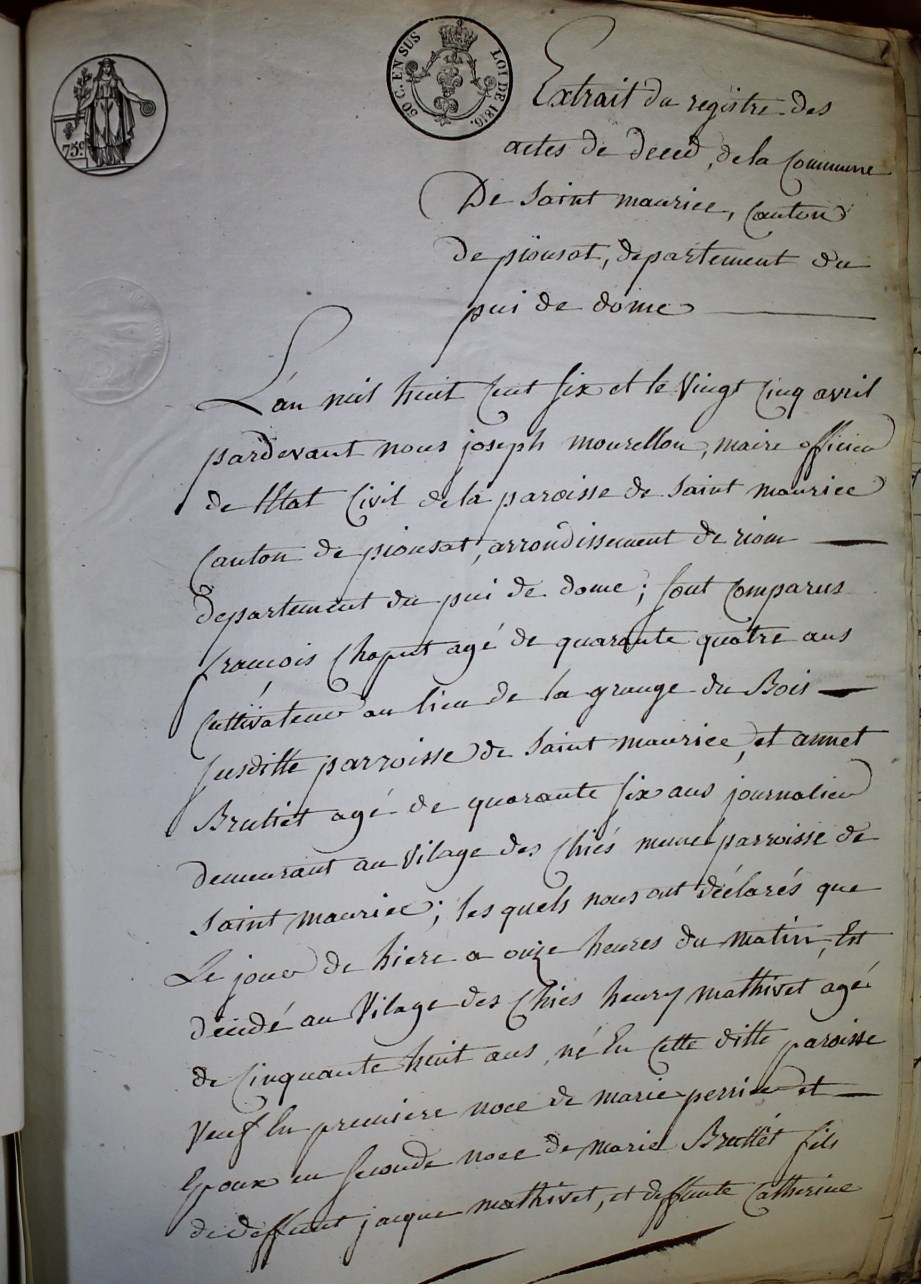 75c
50 C. EN SUS LOI DE 1816.
Extrait du registre des
actes de deced, de la Commune
De Saint maurice, Canton
de pionsat, departement du
pui de dome
L'an mil huit Cent six et le Vingt Cinq avril
pardevant nous joseph mourellon, maire officier
de l'Etat Civil de la paroisse de Saint maurice
Canton de pionsat, arrondissement de riom
departement du pui de dome; sont Comparus
francois Chaput agé de quarante quatre ans
Cultivateur au lieu de la grange du Bois
susditte parroisse de Saint maurice, et annet
Bruttet agé de quarante six ans journalier
demeurant au Vilage des Chiés meme parroisse de
Saint maurice; les quels nous ont déclarés que
Le jour de hiere a onze heures du matin, Est
décédé au Vilage des Chiés henry mathivet agé
de Cinquante huit ans, né En Cette ditte paroisse
Veuf En premiere noce de marie perrin et
Epoux en seconde noce de marie Bruttét fils
de deffunt jacque mathivet, et deffunte Catherine